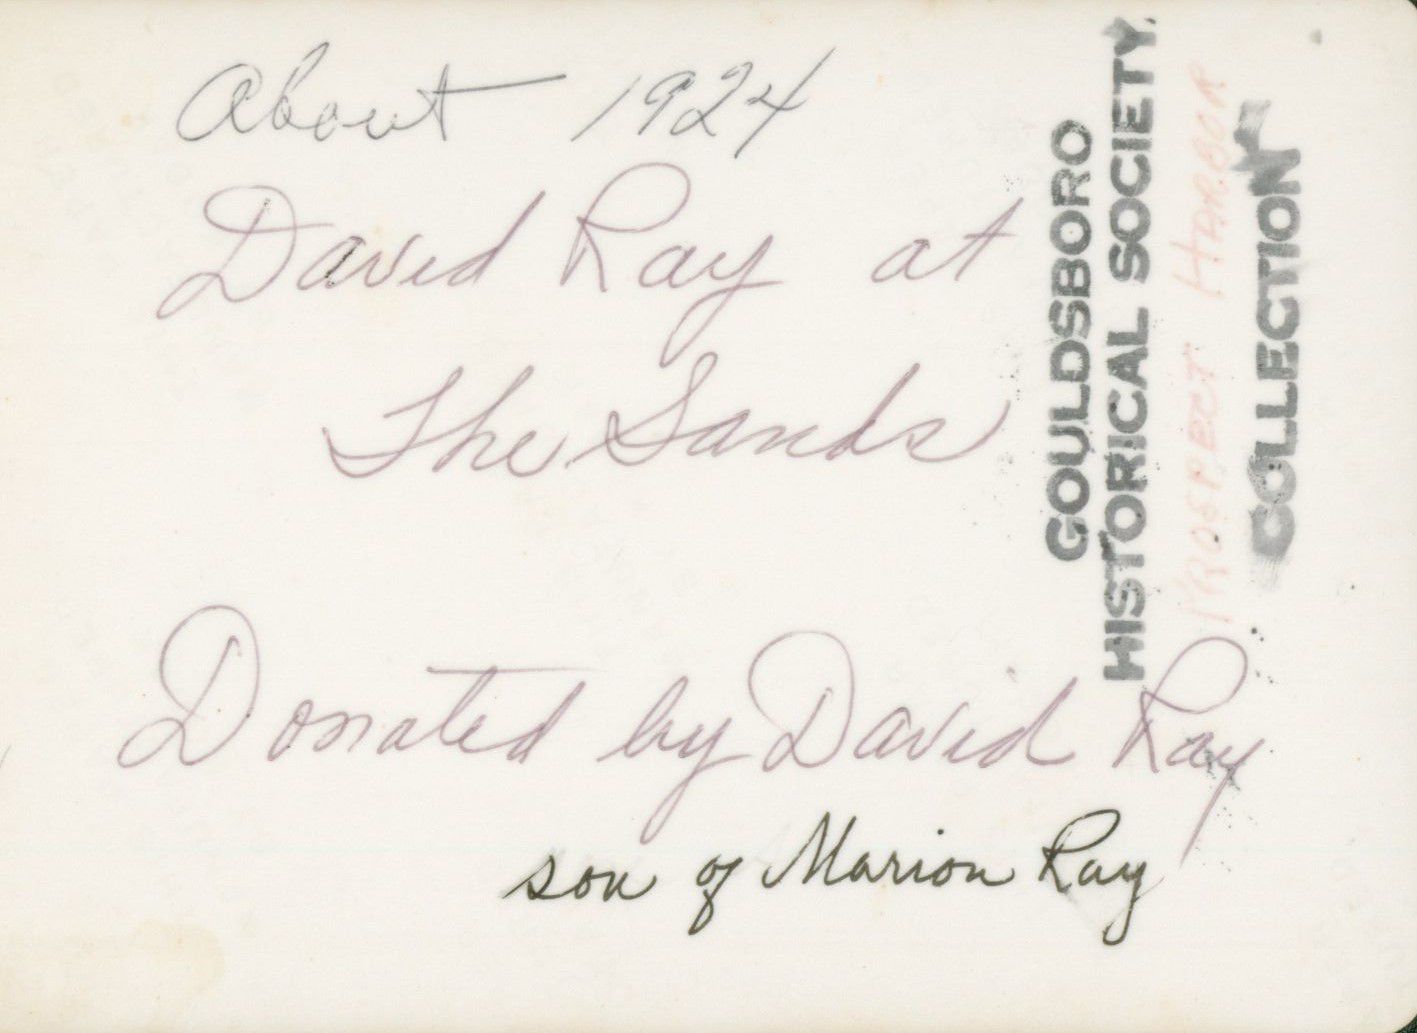 About 1924
David Ray at
The Sands
Donated by David Ray
son of Marion Ray
GOULDSBORO
HISTORICAL SOCIETY
PROSPECT HARBOR
COLLECTION